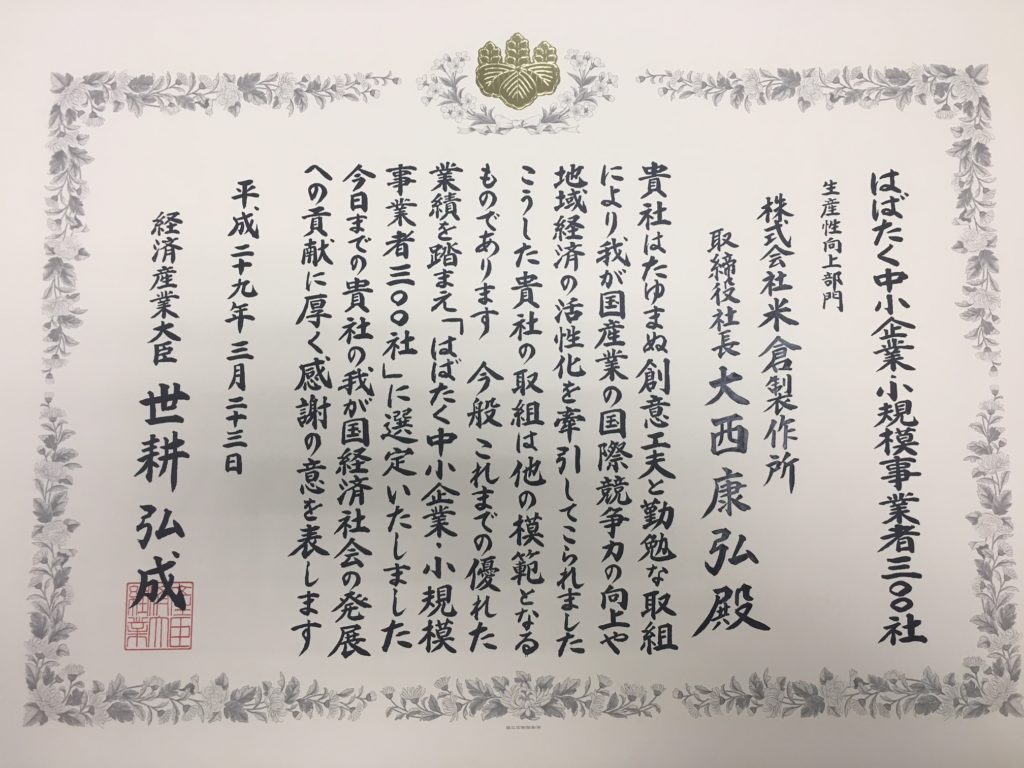 はばたく中小企業・小規模事業者三〇〇社
生産性向上部門
株式会社米倉製作所
取締役社長 大西康弘殿
貴社はたゆまぬ創意工夫と勤勉な取組
により我が国産業の国際競争力の向上や
地域経済の活性化を牽引してこられました
こうした貴社の取組は他の模範となる
ものであります 今般これまでの優れた
業績を踏まえ「はばたく中小企業・小規模
事業者三〇〇社」に選定いたしました
今日までの貴社の我が国経済社会の発展
への貢献に厚く感謝の意を表します
平成二十九年三月二十三日
経済産業大臣 世耕弘成